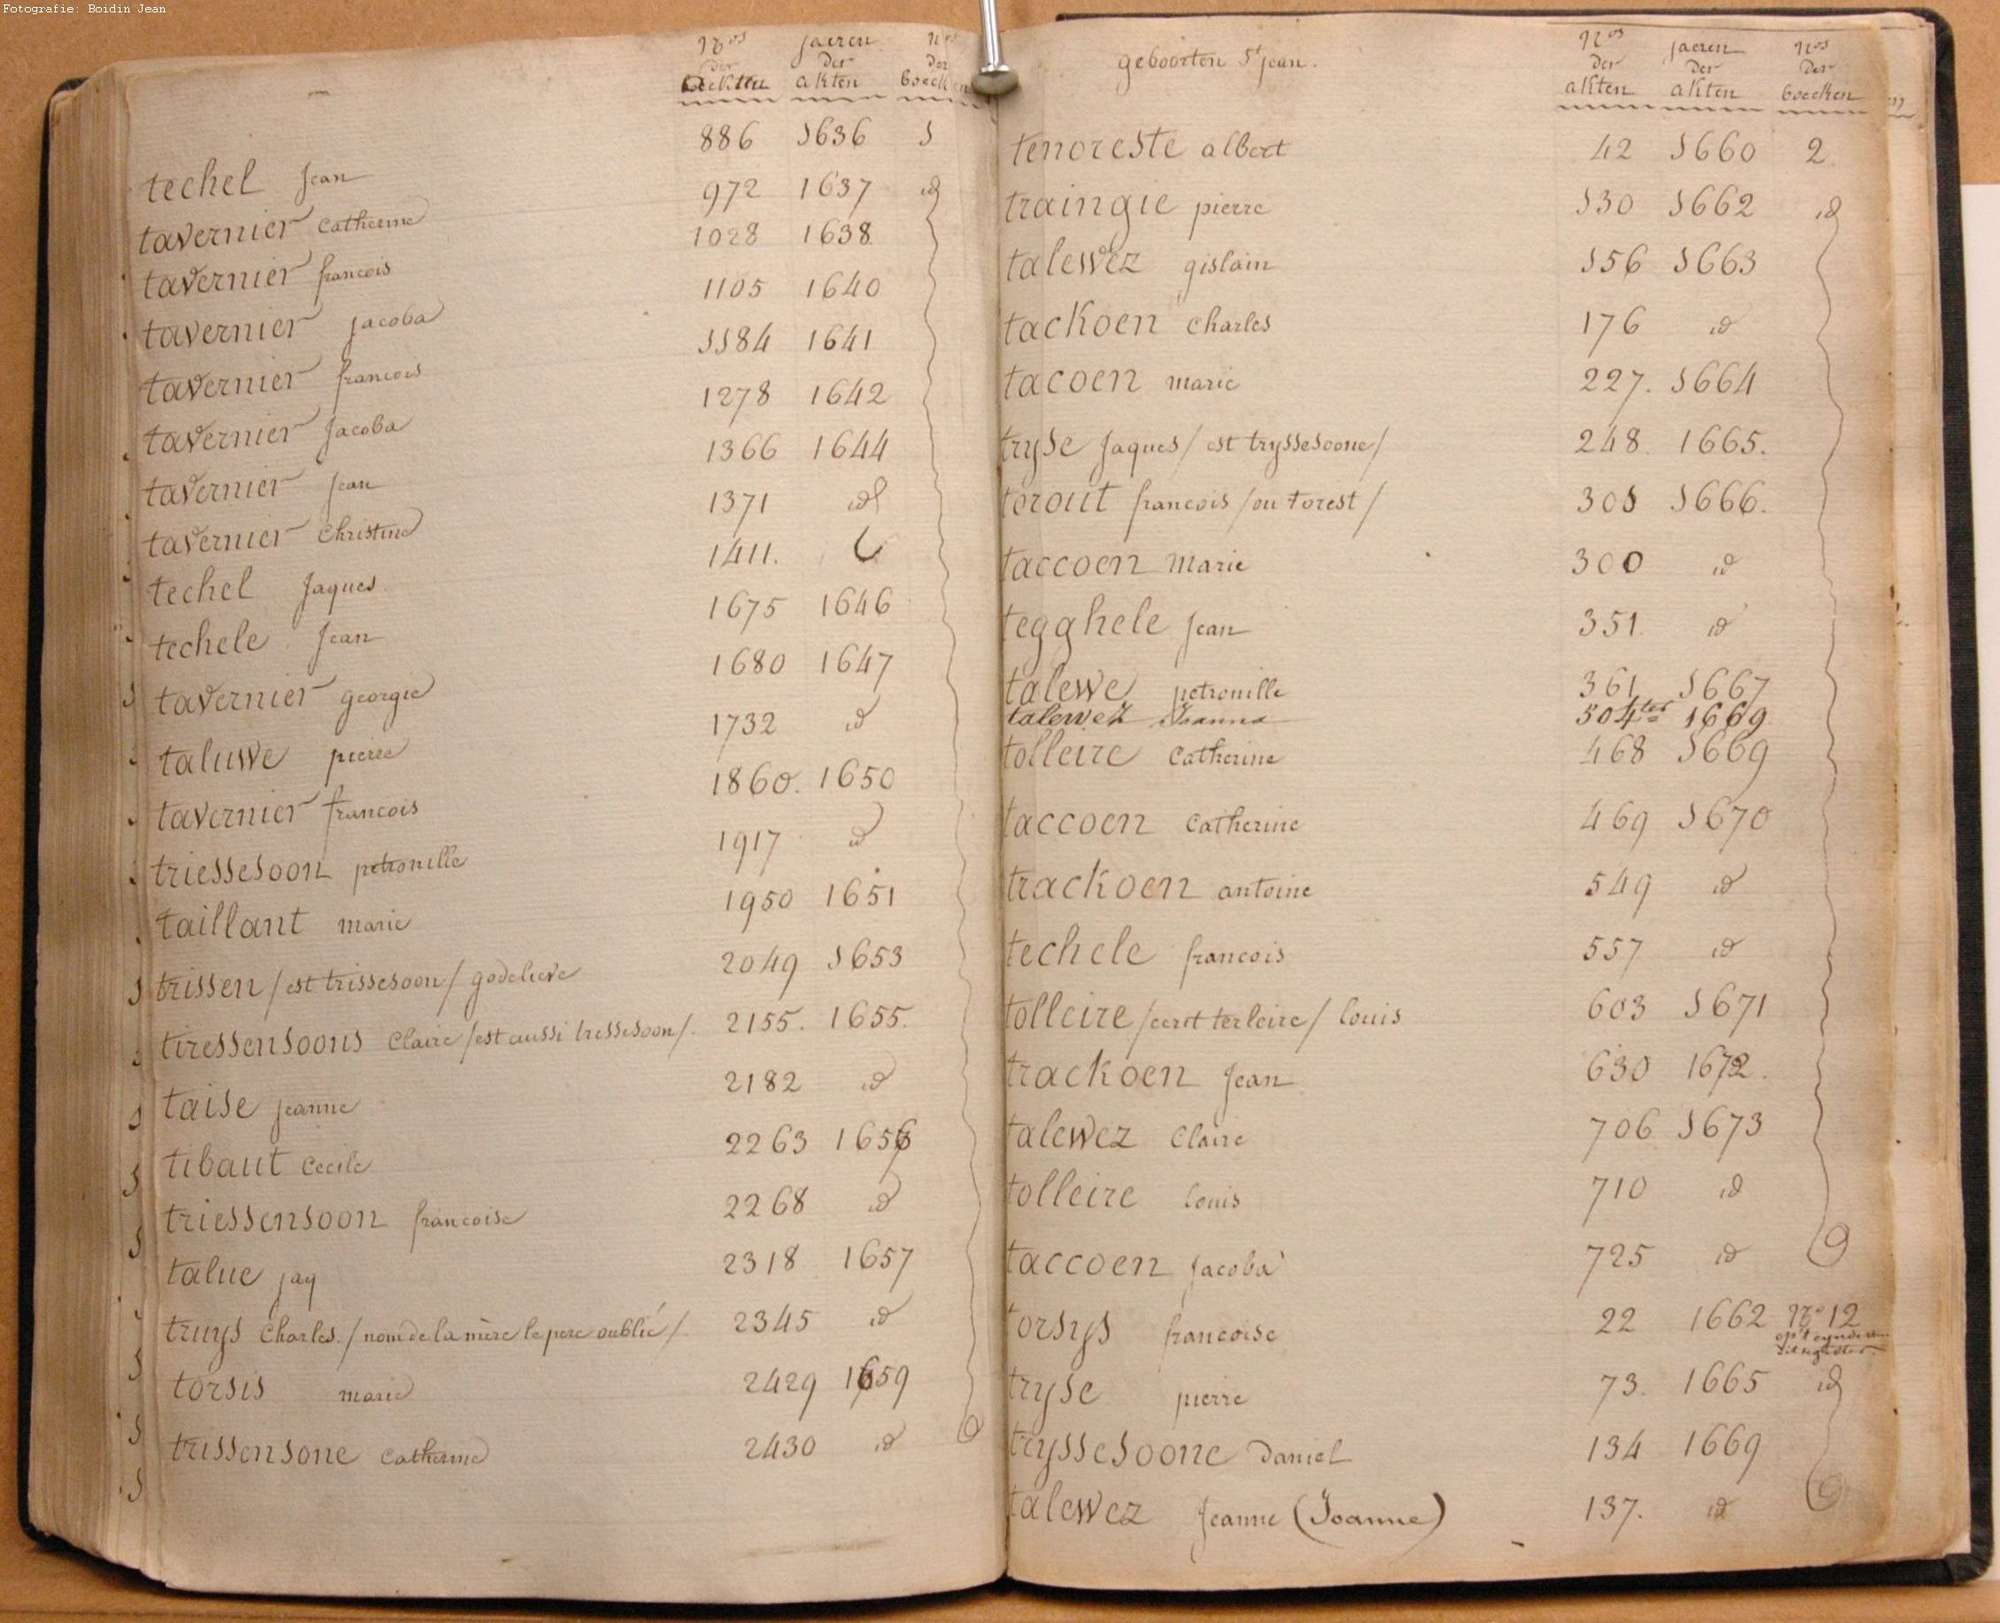 Fotografie: Boidin Jean
Nos jaeren nos
der der der
akten boecken
techel Jean 886 1636 1
tavernier Catherine 972 1637 id
tavernier francois 1028 1638
tavernier Jacoba 1105 1640
tavernier francois 1184 1641
tavernier Jacoba 1278 1642
tavernier Jean 1366 1644
tavernier Christine 1371 id
techel Jaques 1411.
techele Jean 1675 1646
tavernier georgie 1680 1647
taluwe pierre 1732 id
tavernier francois 1860. 1650
triessesoon petronille 1917 id
taillant marie 1950 1651
trissen /est trissesoon/ godelieve 2049 1653
tiressensoons Claire /est aussi tressesoon/. 2155. 1655.
taise jeanne 2182 id
tibaut Cecile 2263 1656
triessensoon francoise 2268 id
talue jaq 2318 1657
truys Charles. /nom de la mère le pere oublié/. 2345 id
torsis marie 2429 1659
trissensone Catherine 2430 id
geboorten St jean.
Nos jaeren nos
der der der
akten akten boecken
tenoreste albert 42 1660 2.
traingie pierre 130 1662 id
talewez gislain 156 1663
tackoen Charles 176 id
tacoen marie 227. 1664
tryse Jaques /est tryssesoone/ 248. 1665.
torout francois /ou torest/ 301 1666.
taccoen Marie 300 id
tegghele Jean 351. id
talewe petronille 361 1667
talewez Joanna 504ter 1669
tolleire Catherine 468 1669
taccoen Catherine 469 1670
trackoen antoine 549 id
techele francois 557 id
tolleire /ecrit terleire/ Louis 603 1671
trackoen Jean 630 1672.
talewez Claire 706 1673
tolleire Louis 710 id
taccoen Jacoba 725 id
torsys francoise 22 1662 No 12
op't eynde
tryse pierre 73. 1665 id
tryssesoone Daniel 134 1669
talewez Jeanne (Joanne) 137. id